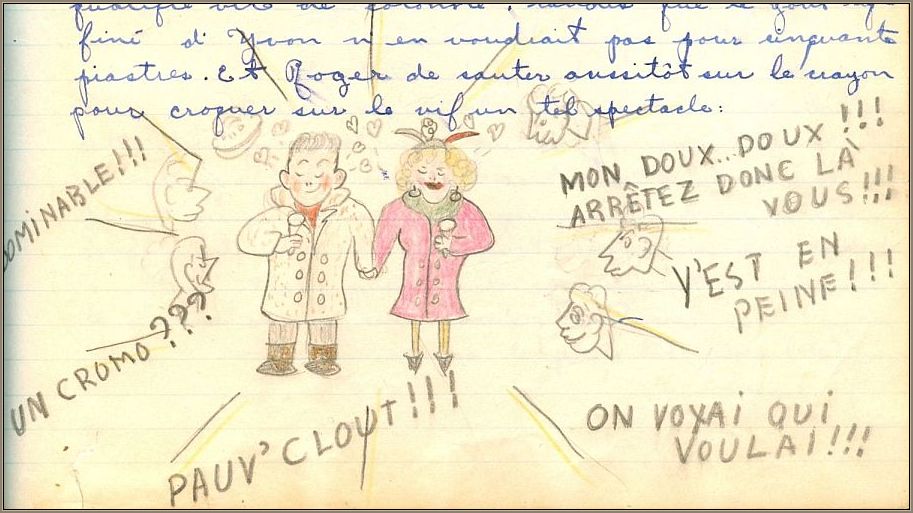 qualifié vite de que le goût
finé d'Yvon n'en voudrait pas pour cinquante
piastres. Et Roger de sauter aussitôt sur le crayon
pour croquer sur le vif un tel spectacle:
OMINABLE!!!
MON DOUX...DOUX!!!
ARRÊTEZ DONC LÀ
VOUS!!!
Y'EST EN
PEINE!!!
UN CROMO???
PAUV' CLOUT!!!
ON VOYAI QUI
VOULAI!!!